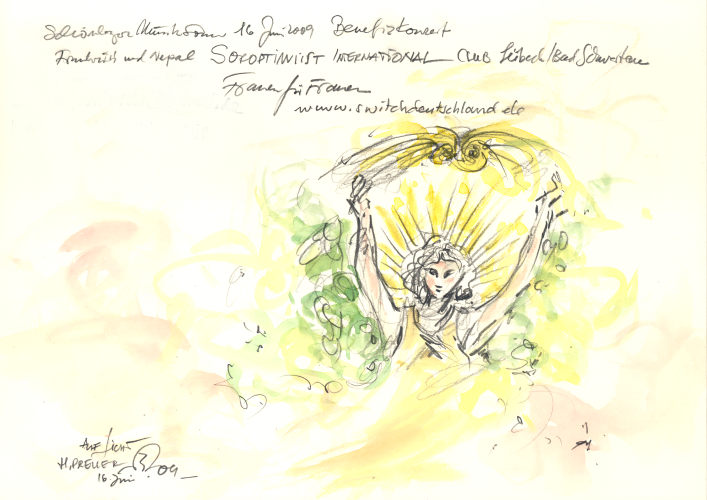 16 Juni 2009 Benefizkonzert
Frankreich und Nepal SOROPTIMIST INTERNATIONAL CLUB Lübeck/Bad Schwartau
Frauen für Frauen
www.switchdeutschland.de
H. PREUER 09
16 Juni